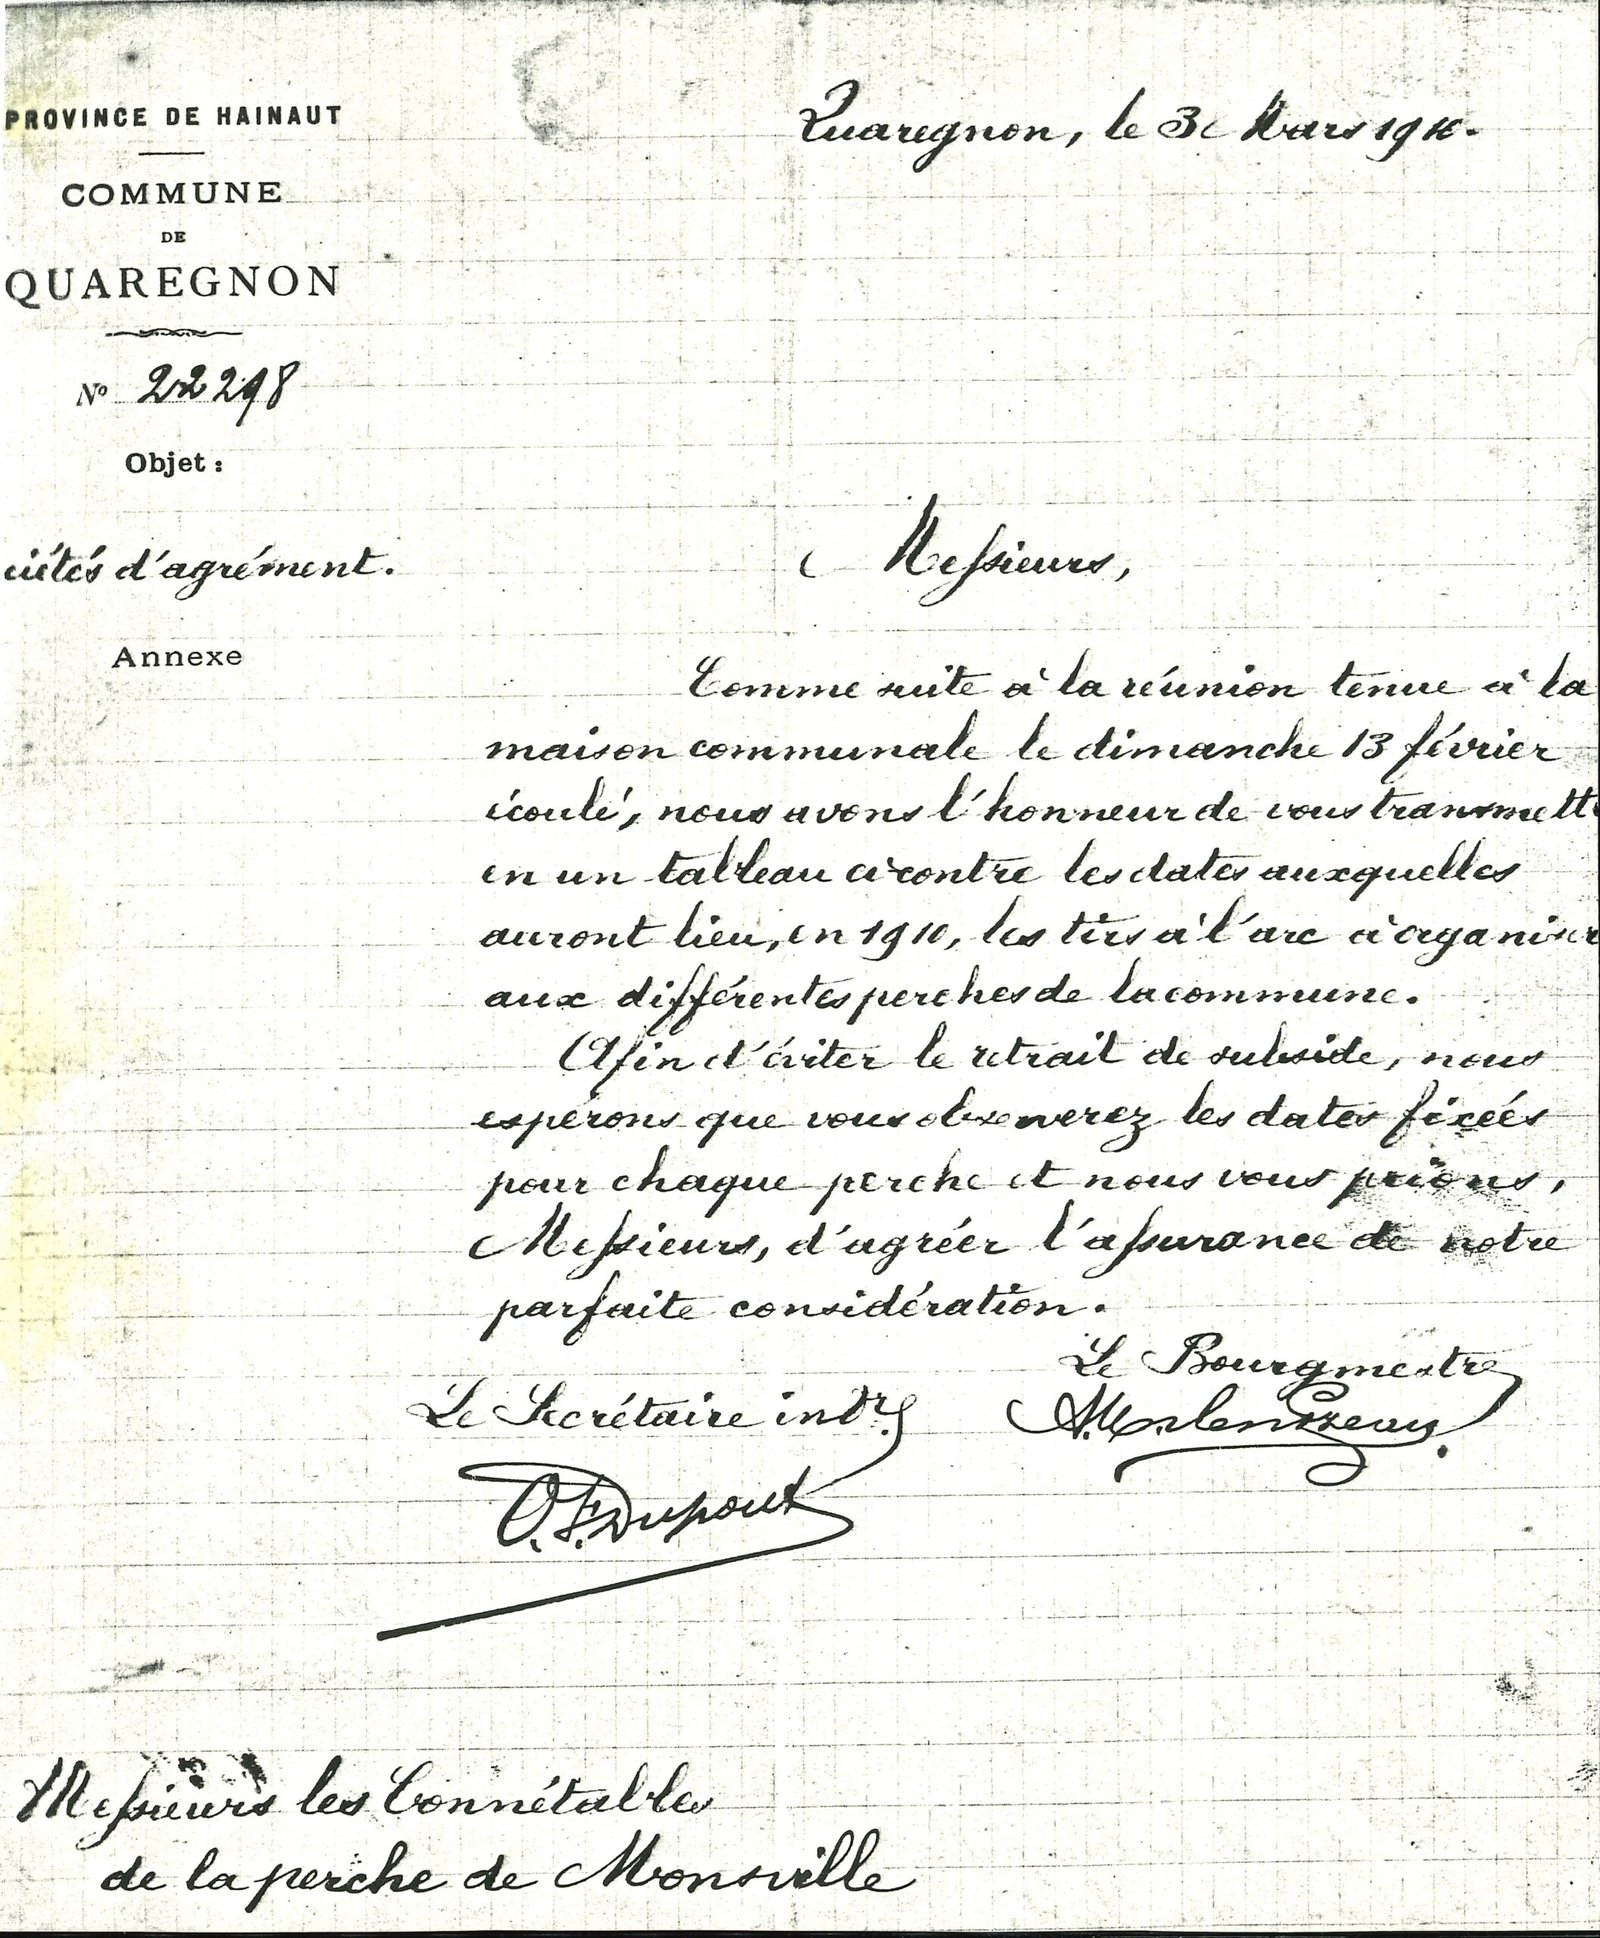 PROVINCE DE HAINAUT
COMMUNE
DE
QUAREGNON
Nº 22298
Objet :
ciétés d'agrément.
Annexe
Quaregnon, le 3 Mars 1910.
Messieurs,
Comme suite à la réunion tenue à la
maison communale le dimanche 13 février
écoulé, nous avons l'honneur de vous transmett
en un tableau ci-contre les dates auxquelles
auront lieu, en 1910, les tirs à l'arc à organiser
aux différentes perches de la commune.
Afin d'éviter le retrait de subside, nous
espérons que vous observerez les dates fixées
pour chaque perche et nous vous prions,
Messieurs, d'agréer l'assurance de notre
parfaite considération.
Le Bourgmestre
Le Secrétaire
O. F. Dupont
Messieurs les Connétables
de la perche de Monsville